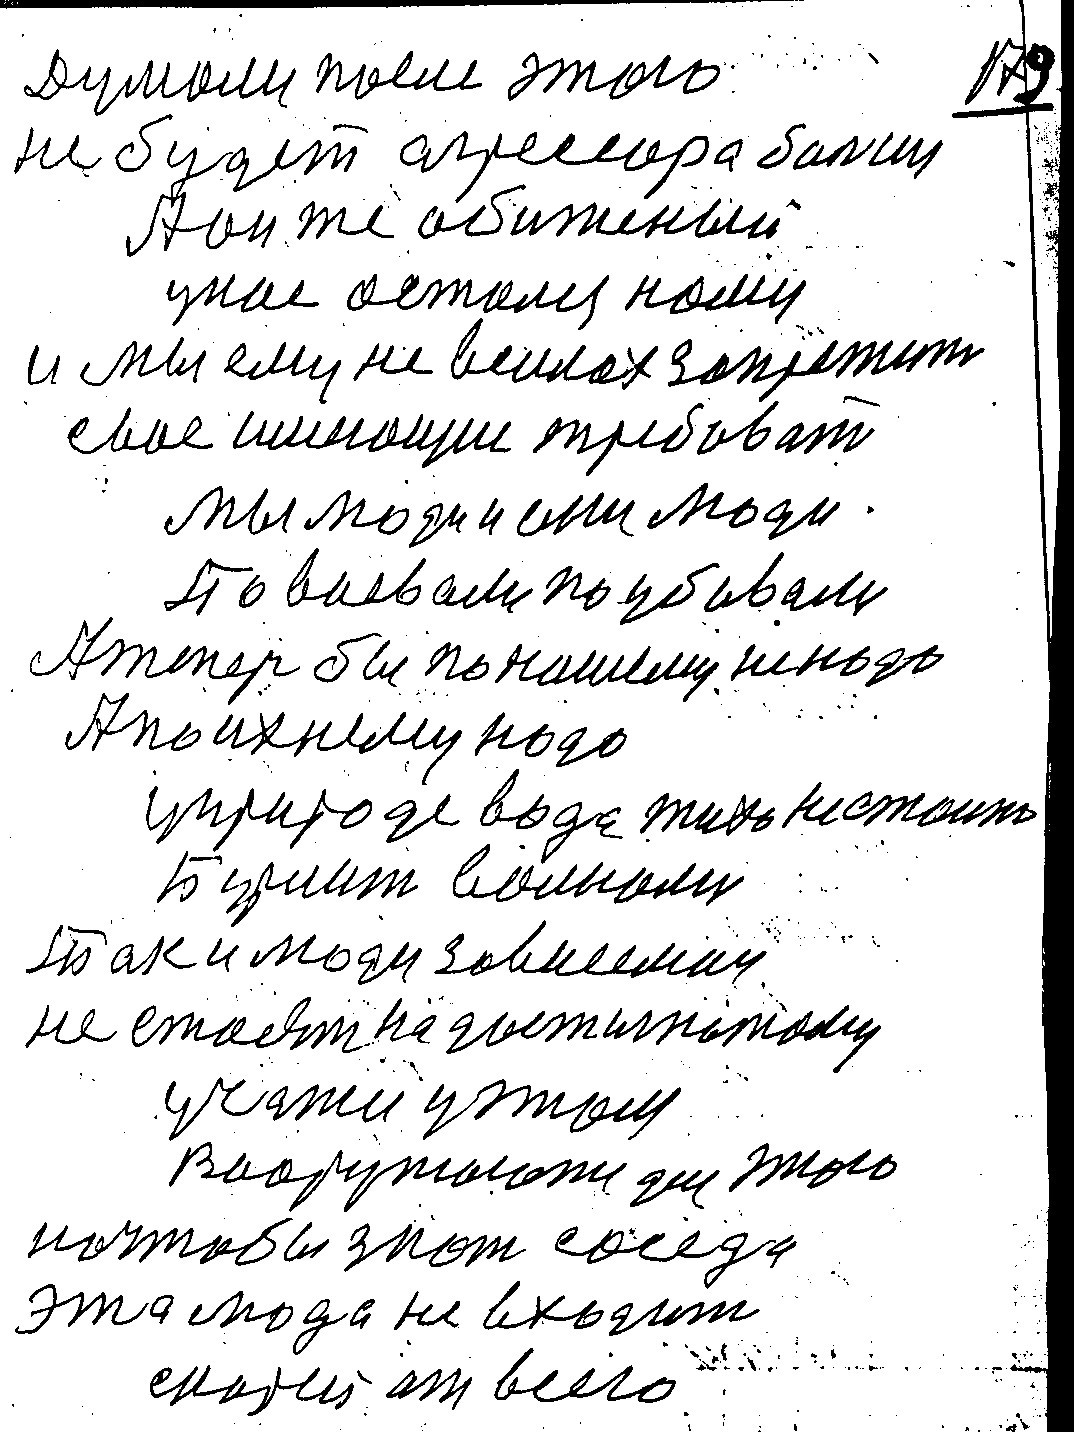 179
Думали после этого
не будет агрессора больш
А он же обиженый
у нас остался нами
и мы ему не в силах запретит
свое имеющие требоват
мы люди и они люди.
Повоевали поубивали
А тепер бы по нашему не надо
А по ихнему надо
у природе вода тихо не стоить
Бурлит волнами
Так и люди зависемии
не стоят на достигнотому
учатся у этом
Вооружаются для этого
но чтобы знат соседа
эта мода не входит
скорей от всего